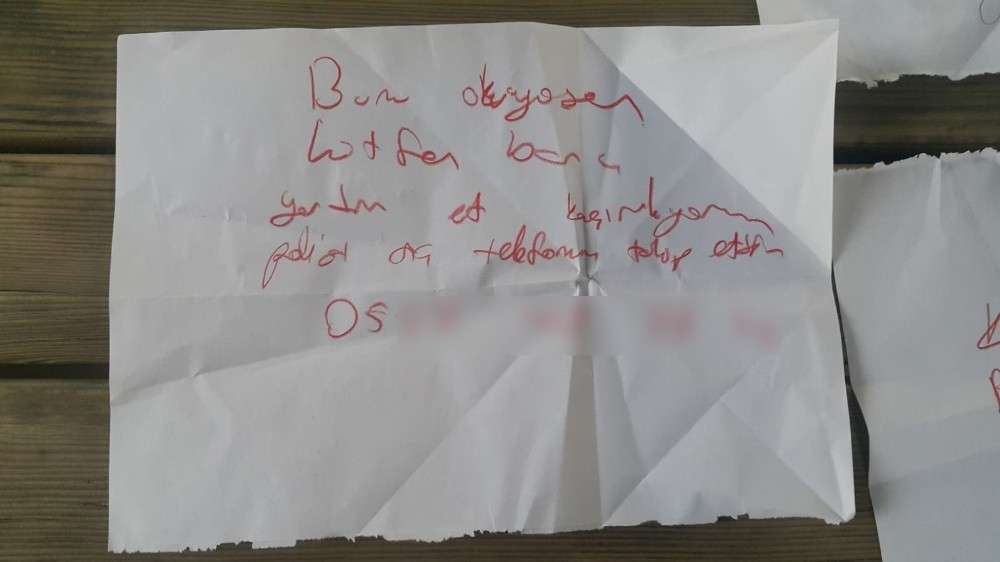 Bunu okuyosan
Lütfen bana
yardım et kaçırılıyorum
polisi ara telefonumu takip ettir
05